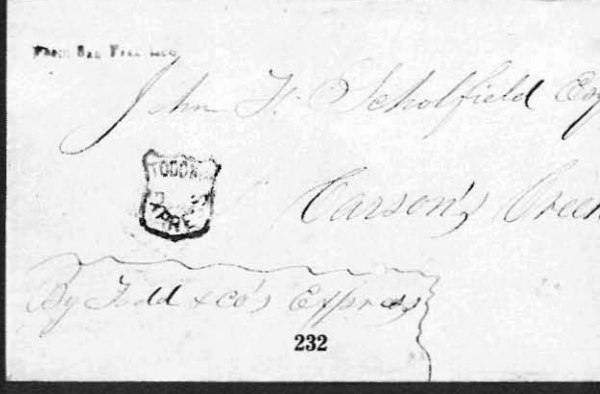 From San Francisco
John H. Scholfield Esq
TODD &
XPRE
Carson's Creek
By Todd & Co's Express
232